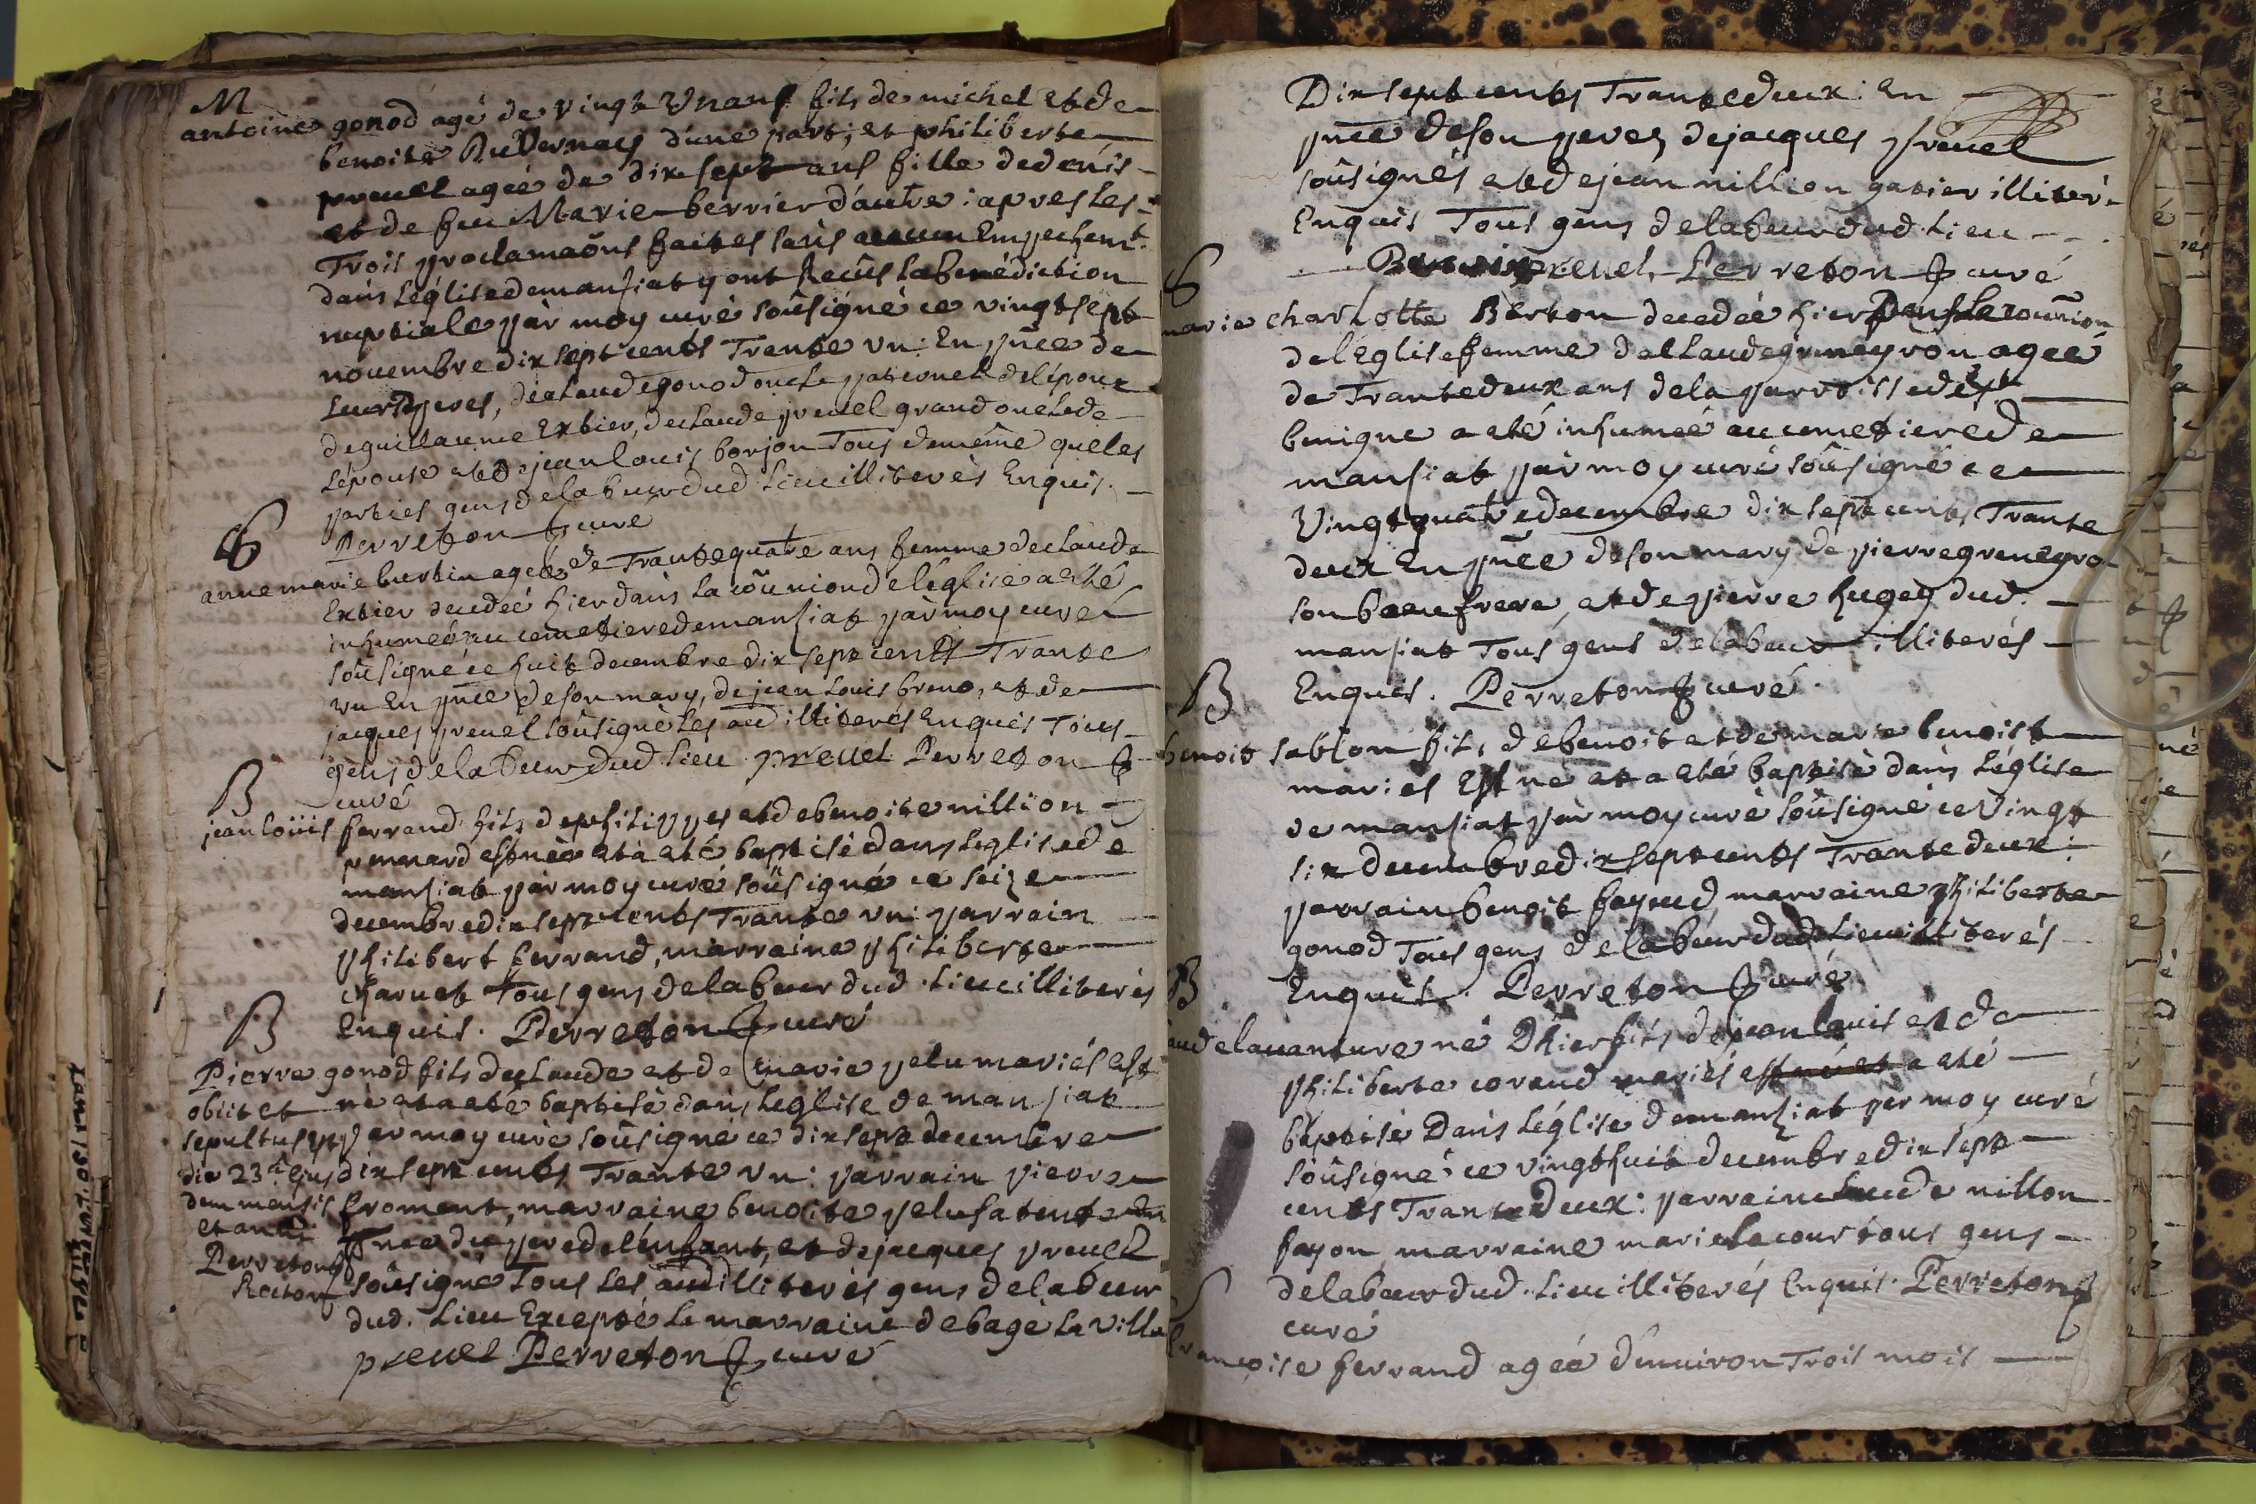 M
antoine gonod agé de vingt Un ans fils de michel et de
benoite Du Vernay d'une part; et philiberte
preuel ageé de dix sept ans fille de denis
et de feu Marie berrier d'autre: apres les
Trois proclamaõns faites sans aucun Empechemt.
dans L'église de mansiat y ont Recûs la benédiction
nuptiale par moy curé soûsigné ce vingt sept
novembre dix sept cents Trente vn: En pñce de
Leurs peres, de claude gonod oncle paternel de l'époux
de guillaume Extier, de claude preuel grand oncle de
L'épouse et de jean louis borjon Tous de même que les
parties gens de labeur dud. Lieu illiterés Enquis.
Perreton curé
S
anne marie burtin ageé de Trante quatre ans femme de claude
Extier decedeé hier dans la coũnion de l'église a eté
inhumeé au cemetiere de mansiat par moy curé
soûsigné ce huit decembre dix sept cents Trante
vn En pñce de son mary, de jean Louis breno, et de
jacques preuel soûsigné Les au illiterés Enquis Tous
gens de labeur dud. Lieu preuel Perreton
curé
B
jean loüis ferrand fils de philippes et de benoite nillion
pennard est né et a eté baptisé dans L'eglise de
mansiat par moy curé soûsigné ce seize
decembre dix sept cents Trante vn: parrain
philibert ferrand, marraine philiberte
charuet Tous gens de labeur dud. Lieu illiterés
Enquis. Perreton curé
B
Pierre gonod fils de claude et de marie pelu mariés est
né et a eté baptisé dans L'eglise de mansiat
par moy curé soûsigné ce dix sept decembre
dix sept cents Trante vn: parrain pierre
froment, marraine benoite pelu sa tente En
pñce du pere de l'enfant, et de jacques preuel
soûsigné Tous Les aud illiterés gens de labeur
dud. Lieu Excepté La marraine de bagé La ville
preuel Perreton curé
obiit et
sepultus
die 23ª ejus
dem mensis
et anni
Perreton
Rector
Dix sept cents Trante deux: En
pñce de son pere, de jacques preuel
soûsignés et de jean nillion gatier illiteré
Enquis Tous gens de labeur dud. Lieu
preuel, Perreton curé
S
marie charlotte Berton decedeé hier Dans La coũnion
de l'Église femme de claude gremeyron ageé
de Trante deux ans de la parroisse de st
benigne a eté inhumeé au cemetiere de
mansiat par moy curé soûsigné ce
Vingt quatre decembre dix sept cents Trante
deux En pñce de son mary de pierre
son beau frere, et de pierre hugey dud.
mansiat Tous gens de labeur illiterés
Enquis. Perreton curé.
B
benoit sablon fils de benoit et de marie benoist
mariés Est né et a eté baptisé dans L'église
de mansiat par moy curé soûsigné ce Vingt
six decembre dix sept cents Trante deux:
parrain benoit fayoud marraine philiberte
gonod Tous gens de labeur dud. Lieu illiterés
Enquis. Perreton curé
B
aud elauanture né D'hier fils de jean louis et de
philiberte corand mariés est né et a eté
baptisé Dans L'église de mansiat par moy curé
soûsigné ce vingt huit decembre dix sept
cents Trante Deux: parrain claude nillon
fayon, marraine marie lacour tous gens
de labeur dud. Lieu illiterés Enquis. Perreton
curé
francoise ferrand ageé d'enuiron Trois mois